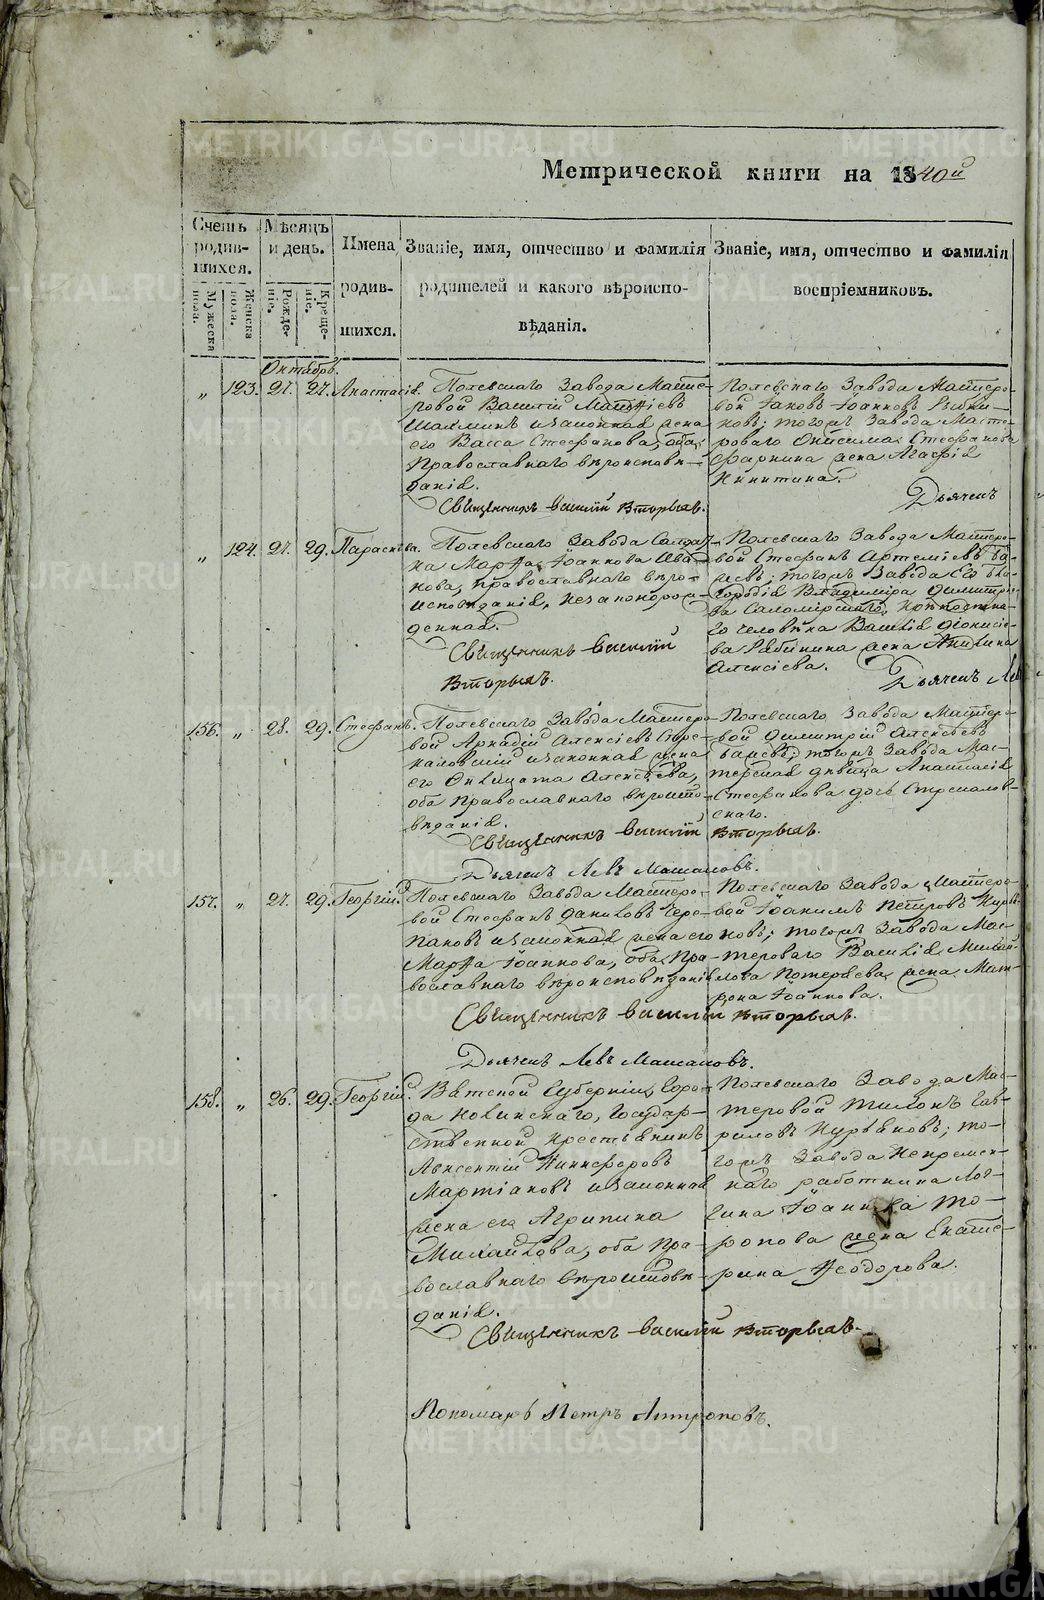 Метрической книги на 1840й
Счетъ родившихся.
Мужеска пола.
Женска пола.
Мѣсяцъ и день.
Рожденіе.
Крещеніе.
Имена родившихся.
Званіе, имя, отчество и фамилія родителей и какого вѣроисповѣданія.
Званіе, имя, отчество и фамилія воспріемниковъ.
Октябрь.
„ 123. 27. 27. Анастасія.
Полевскаго Завода Масте-
ровой Василій Матѳіевъ
и законная жена
его Васса Стефанова, оба
Православнаго вѣроисповѣ-
данія.
Священникъ Василій Вторыхъ.
Полевскаго Завода Мастеро-
вой Іаковъ Іоанновъ
; тогожъ Завода Масте-
роваго Онисима Стефанова
жена Агафія
Никитина.
Дьячекъ
„ 124. 27. 29. Параскева.
Полевскаго Завода Солдат-
ка Марѳа Іоаннова Ива-
нова, православнаго вѣро-
исповѣданія, незаконорож-
денная.
Священникъ Василій
Вторыхъ.
Полевскаго Завода Мастеро-
вой Стефанъ Артеміевъ
; тогожъ Завода Его Бла-
городія Владиміра Димитріе-
ва Саломірскаго,
го человѣка Василія Діонисіе-
ва Рябинина жена Акилина
Алексіева.
Дьячекъ Ле
156. „ 28. 29. Стефанъ.
Полевскаго Завода Мастеро-
вой Аркадій Алексіевъ Стре-
каловскій и законная жена
его Алексѣева,
оба Православнаго вѣроиспо-
вѣданія.
Священникъ Василій Вторыхъ.
Дьячекъ Левъ Мамаковъ.
Полевскаго Завода Мастеро-
вой Димитрій Алексѣевъ
; тогожъ Завода Мас-
терская дѣвица Анастасія
Стефанова дочь Стрекалов-
скаго.
157. „ 27. 29. Георгій.
Полевскаго Завода Мастеро-
вой Стефанъ Даниловъ Чере-
пановъ и законная жена его
Марѳа Іоаннова, оба Пра-
вославнаго вѣроисповѣданія
Священникъ Василій Вторыхъ.
Дьячекъ Левъ Мамаковъ.
Полевскаго Завода Мастеро-
вой Іоакимъ Петровъ Курья-
новъ; тогожъ Завода Мас-
тероваго Василія Михай-
лова Потеряева жена Мат-
рона Іоаннова.
158. „ 26. 29. Георгій.
Вятской Губерніи, Горо-
да Нолинскаго, Государ-
ственной крестьянинъ
Авксентій Никифоровъ
Мартіановъ и законная
жена его Агрипина
Михайлова, оба Пра-
вославнаго вѣроисповѣ-
данія.
Священникъ Василій Вторыхъ.
Полевскаго Завода Мас-
теровой Тихонъ Гав-
риловъ Курьяновъ; то-
гожъ Завода Непремен-
наго работника Лон-
гина Іоаннова То-
ропова жена Екате-
рина Ѳеодорова.
Пономарь Петръ Антроповъ.
METRIKI.GASO-URAL.RU